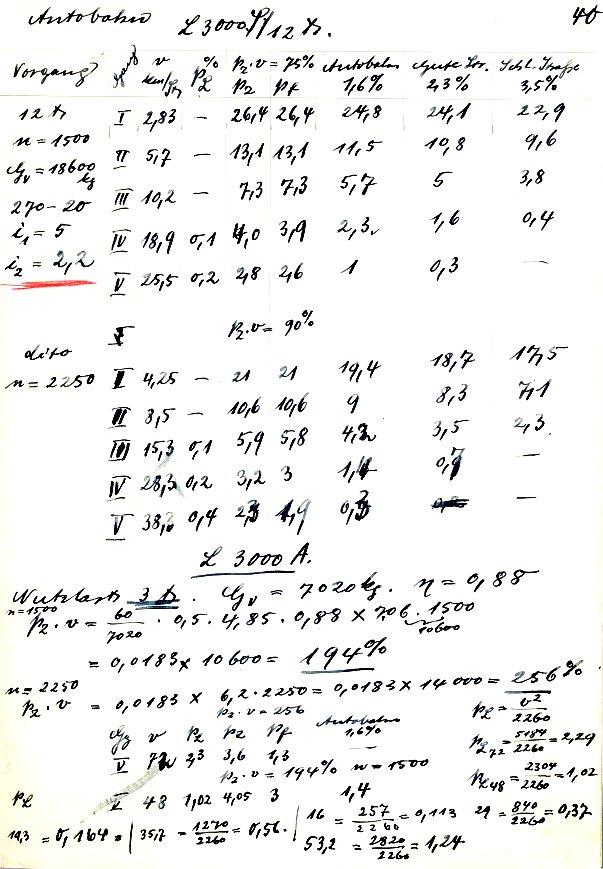 Autobahn L 3000 S/12 t. 40
Vorgang v % p₂·v = 75% Autobahn Gute Str. Schl. Straße
km/St pL p₂ pf 1,6% 2,3% 3,5%
12 t I 2,83 — 26,4 26,4 24,8 24,1 22,9
n = 1500 II 5,7 — 13,1 13,1 11,5 10,8 9,6
Gv = 18600 kg III 10,2 — 7,3 7,3 5,7 5 3,8
270-20
i₁ = 5 IV 18,9 0,1 4,0 3,9 2,3 1,6 0,4
i₂ = 2,2 V 25,5 0,2 2,8 2,6 1 0,3 —
p₂·v = 90%
dito
n = 2250 I 4,25 — 21 21 19,4 18,7 17,5
II 8,5 — 10,6 10,6 9 8,3 7,1
III 15,3 0,1 5,9 5,8 4,2 3,5 2,3
IV 28,3 0,2 3,2 3 1,4 0,7 —
V 38,2 0,4 2,3 1,9 0,3 —
L 3000 A.
Nutzlast 3 t. Gv = 7020 kg. η = 0,88
n=1500
p₂·v = 60/7020 · 0,5 · 4,85 · 0,88 × 7,06 · 1500
10600
= 0,0183 × 10600 = 194%
n = 2250
p₂·v = 0,0183 × 6,2·2250 = 0,0183 × 14000 = 256%
p₂·v = 256 pL = v²/2260
Gg v pL p₂ pf Autobahn 1,6%
V 72 2,3 3,6 1,3 — pL72 = 5184/2260 = 2,29
p₂·v = 194% n = 1500
pL48 = 2304/2260 = 1,02
pL V 48 1,02 4,05 3 1,4
19,3 = 0,164 = | 35,7 = 1270/2260 = 0,56. | 16 = 257/2260 = 0,113 29 = 840/2260 = 0,37
53,2 = 2820/2260 = 1,24